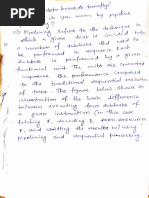 data hazards briefly?
do you mean by pipeline
⇒ Pipelining refers to the technique in
which a given task is divided into
a number of subtasks that need to
be performed in sequence. Each
subtask is performed by a given
functional unit. The units are connected
the performance compared
to the traditional sequential execution
of tasks. The figure below shows an
illustration of the basic difference
between executing four subtasks of
a given instruction (in this case
fetching F, decoding D, execution
E, and writing the results W) using
pipelining and sequential processing.